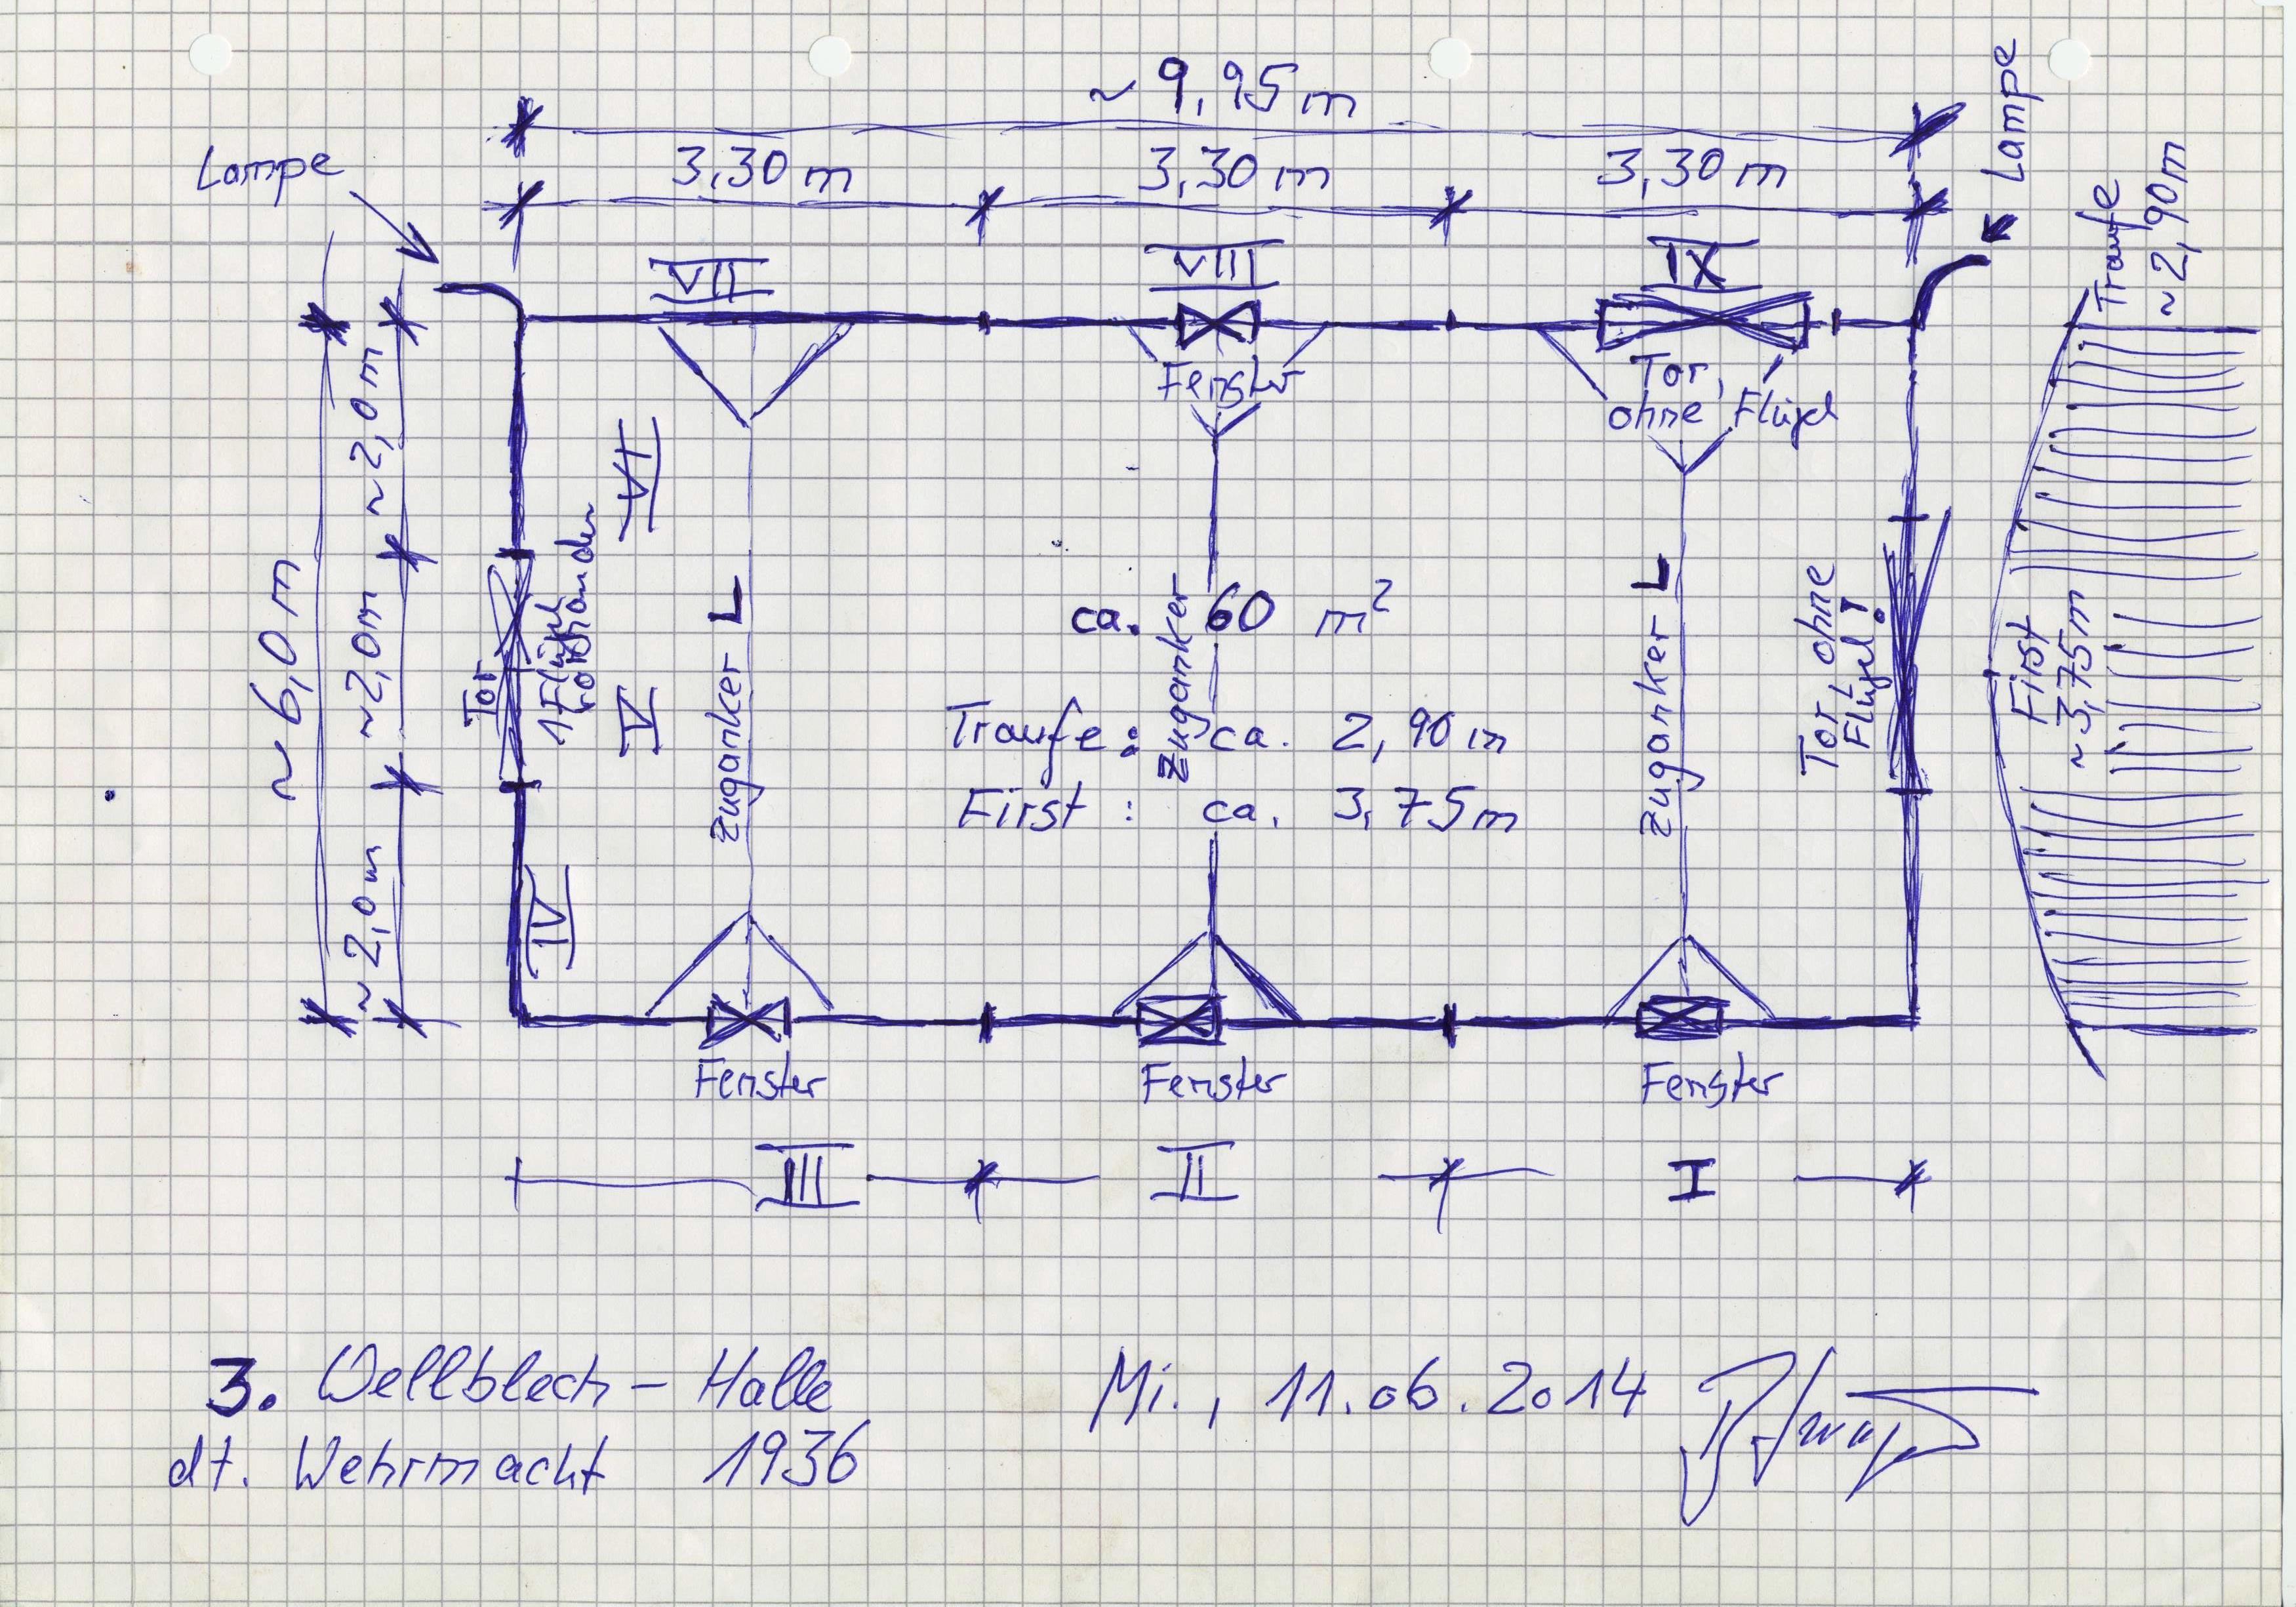 ~ 9,95 m
Lampe
3,30 m
3,30 m
3,30 m
Lampe
VII
VIII
IX
Traufe
~2,90m
Fenster
Tor,
ohne Flügel
~ 6,0 m
~ 2,0 m
~2,0m
~2,0m
VI
Tor
1 Flügel
vorhanden
V
IV
Zuganker L
Zuganker
Zuganker L
ca. 60 m²
Traufe: ca. 2,90 m
First: ca. 3,75m
Tor ohne
Flügel!
First
~3,75m
Fenster
Fenster
Fenster
III
II
I
3. Wellblech - Halle
dt. Wehrmacht 1936
Mi., 11.06.2014